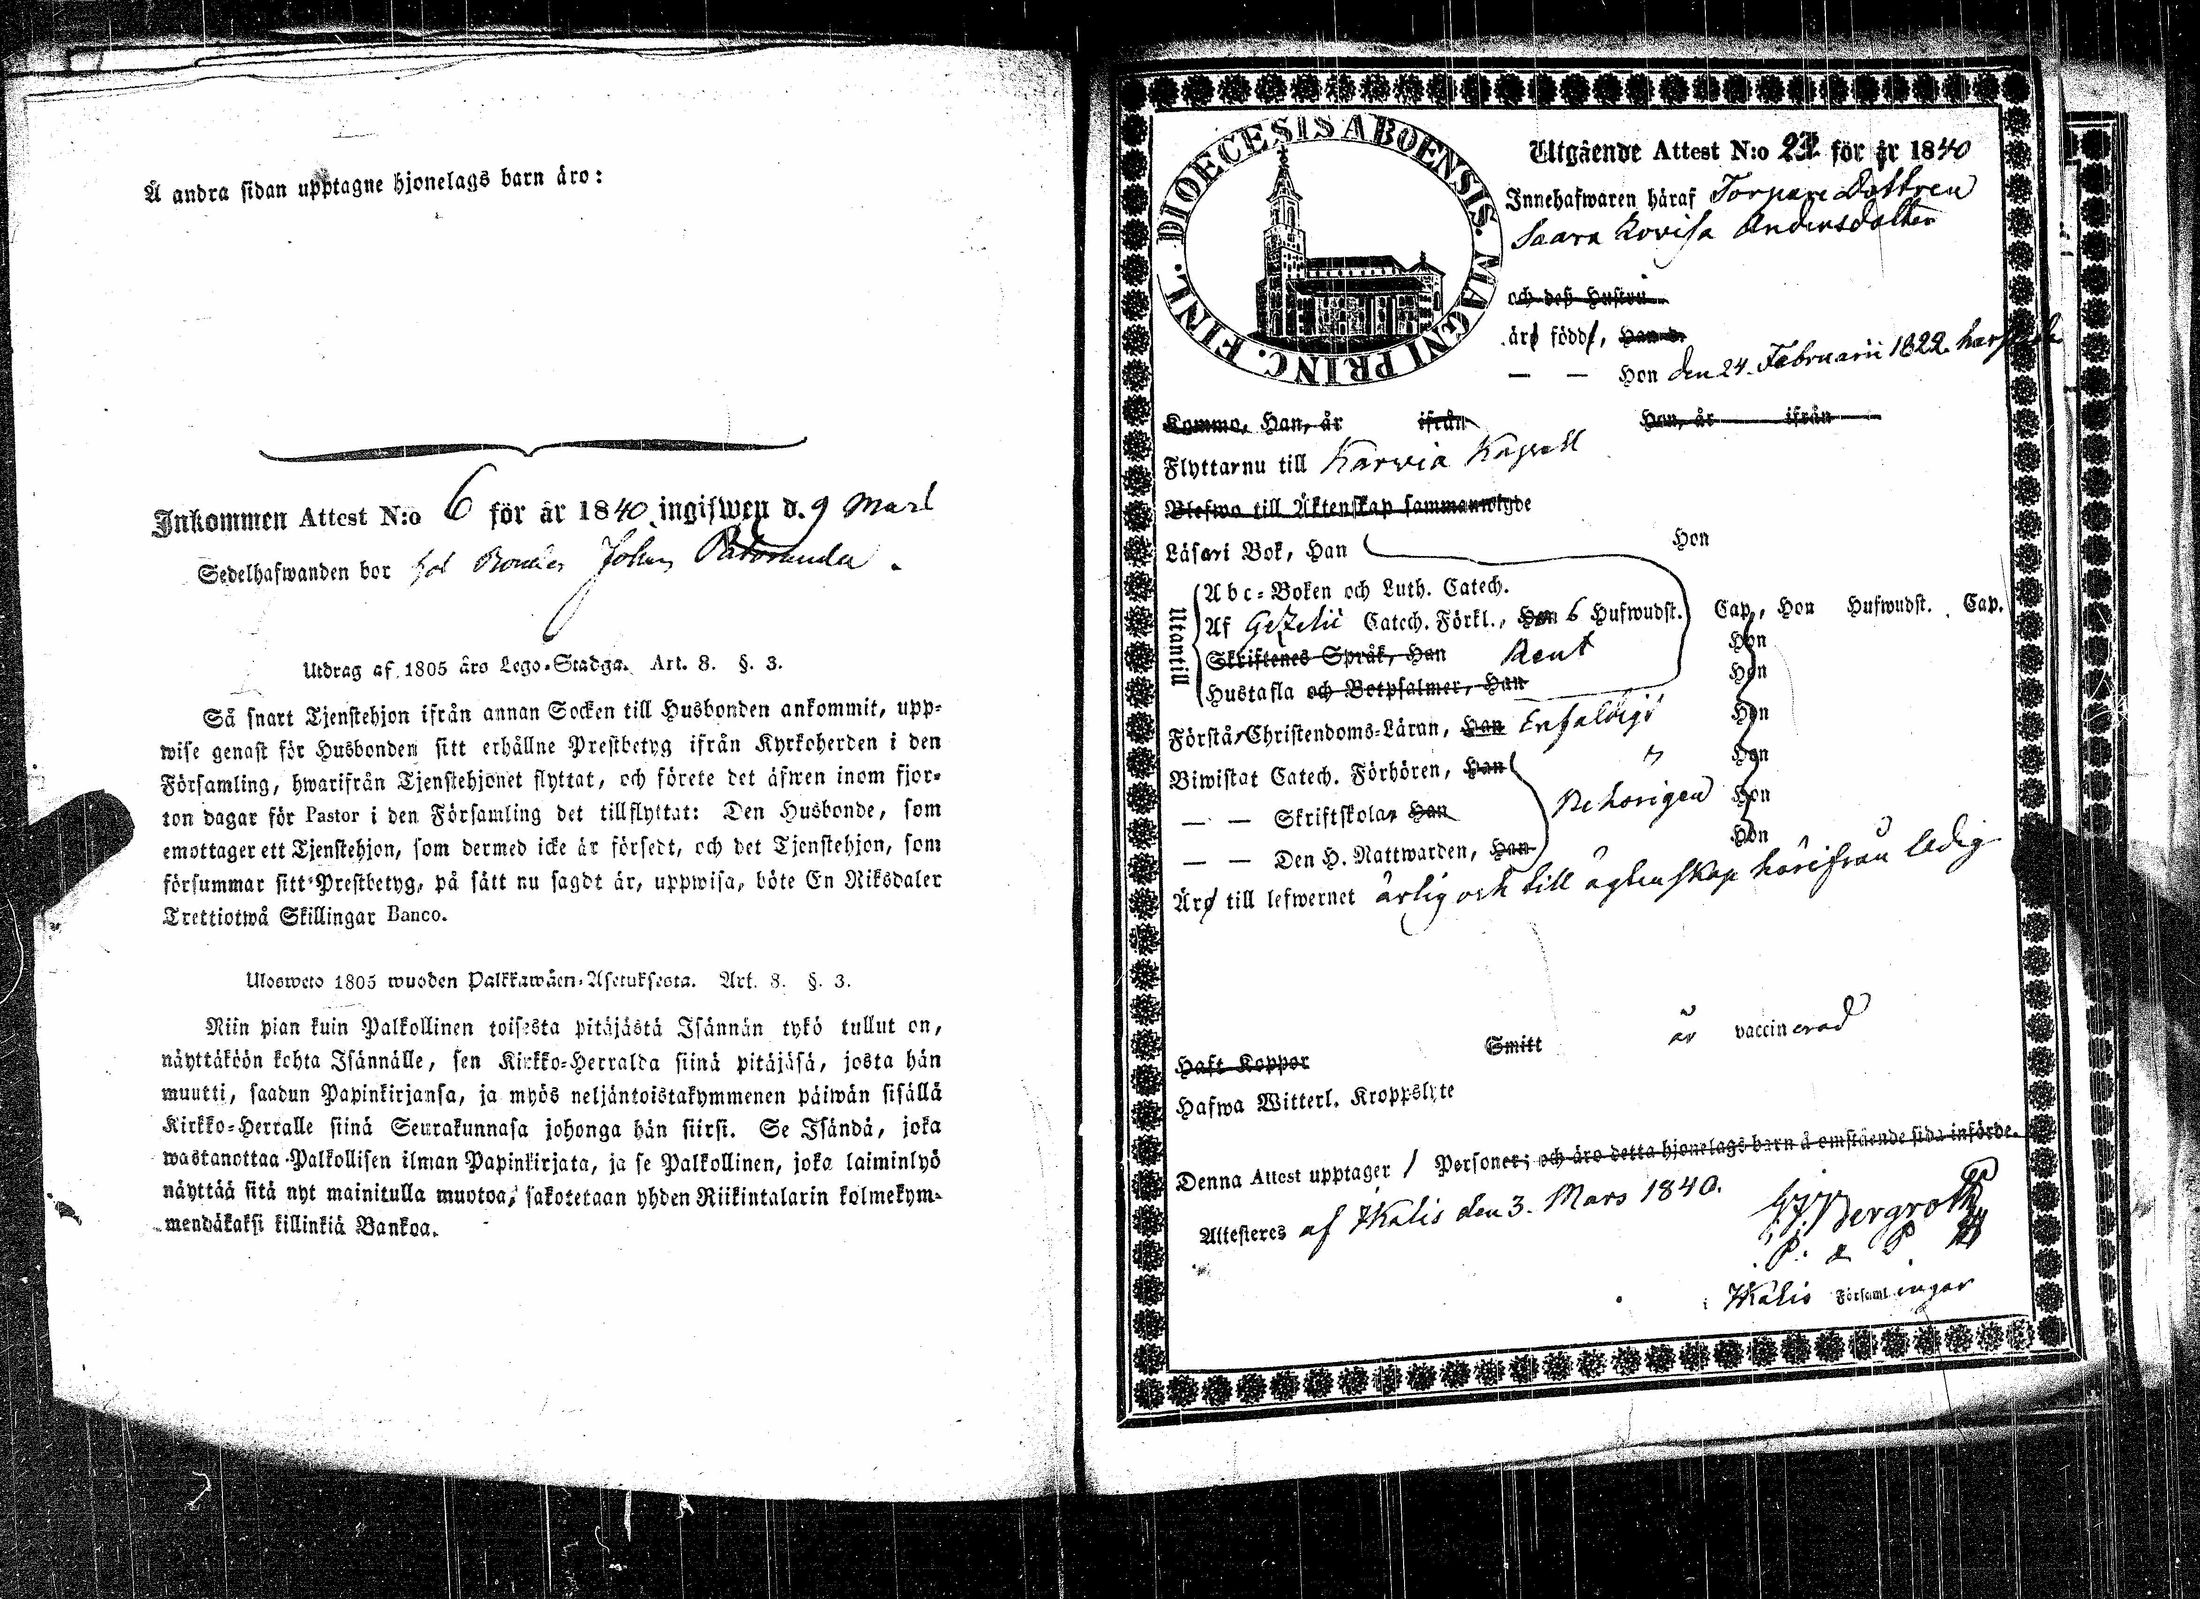 Å andra sidan upptagne hjonelags barn äro:
Inkommen Attest N:o 6 för år 1840 ingifwen d. 9 Mars
Sedelhafwanden bor hos Bonden Johan
Utdrag af 1805 års Lego-Stadga. Art. 8. §. 3.
Så snart Tjenstehjon ifrån annan Socken till Husbonden ankommit, upp-
wise genast för Husbonden sitt erhållne Prestbetyg ifrån Kyrkoherden i den
Församling, hwarifrån Tjenstehjonet flyttat, och förete det äfwen inom fjor-
ton dagar för Pastor i den Församling det tillflyttat: Den Husbonde, som
emottager ett Tjenstehjon, som dermed icke är försedt, och det Tjenstehjon, som
försummar sitt Prestbetyg, på sätt nu sagdt är, uppwisa, böte En Riksdaler
Trettiotwå Skillingar Banco.
Ulosweto 1805 wuoden Palkkawäen-Asetuksesta. Art. 8. §. 3.
Niin pian kuin Palkollinen toisesta pitäjästä Isännän tykö tullut on,
näyttäköön kohta Isännälle, sen Kirkko-Herralda siinä pitäjäsä, josta hän
muutti, saadun Papinkirjansa, ja myös neljäntoistakymmenen päiwän sisällä
Kirkko-Herralle siinä Seurakunnasa johonga hän siirsi. Se Isändä, joka
wastanottaa Palkollisen ilman Papinkirjata, ja se Palkollinen, joka laiminlyö
näyttää sitä nyt mainitulla muotoa, sakotetaan yhden Riikintalarin kolmekym-
mendäkaksi killinkiä Bankoa.
DIOECESIS ABOENSIS. MAGNI PRINC. FINL.
Utgående Attest N:o för år 1840
Innehafwaren häraf Torpare Dottren
Saara Lovisa Andersdotter
och deß Hustru
äro födde, Han d.
— — Hon den 24. Februarii 1822.
Komme, Han, år ifrån Hon, år ifrån
Flyttar nu till Karvia Kapell
Blefwo till Äktenskap sammanwigde
Läsa i Bok, Han Hon
Utantill
Abc-Boken och Luth. Catech.
Af Gezelii Catech. Förkl., Han 6 Hufwudst. Cap., Hon Hufwudst. Cap.
Skriftenes Språk, Han Rent Hon
Hustafla och Botpsalmer, Han Hon
Förstår Christendoms-Läran, Han Enfaldigt Hon
Biwistat Catech. Förhören, Han Hon
— — Skriftskolan Han Behörigen Hon
— — Den H. Nattwarden, Han Hon
Äro till lefwernet ärlig och till ägtenskap härifrån ledig
Haft Koppor Smitt är vaccinerad
Hafwa Witterl. Kroppslyte
Denna Attest upptager 1 Personer; och äro detta hjonelags barn å omstående sida införde.
Attesteres af Ikalis den 3. Mars 1840.
Bergroth
P. & P.
i Ikalis Församlingar